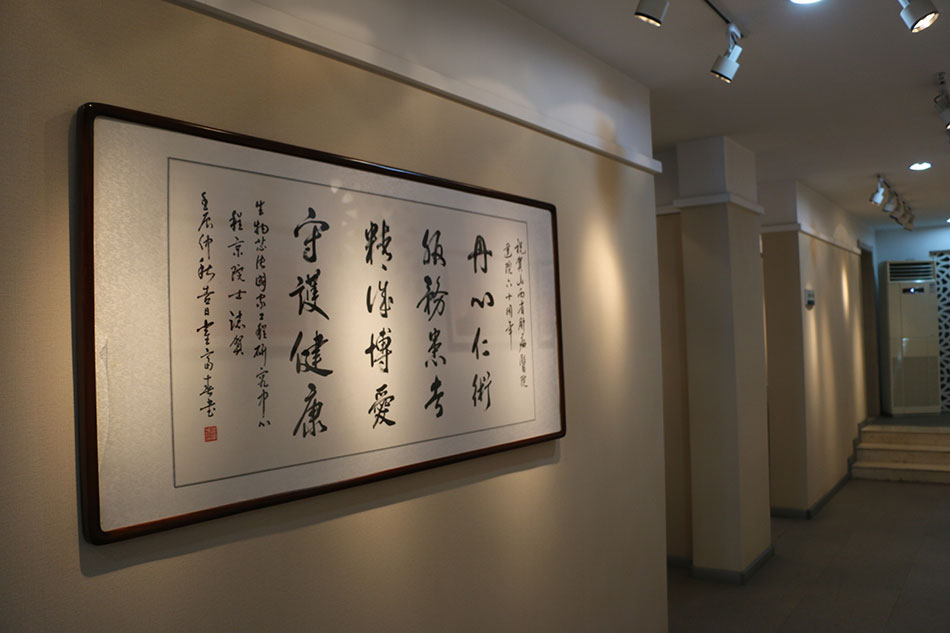 祝贺山西省肿瘤醫院
建院六十周年
丹心仁術
服務患者
精诚博愛
守護健康
生物芯片國家工程研究中心
程京院士誌賀
壬辰仲秋吉日